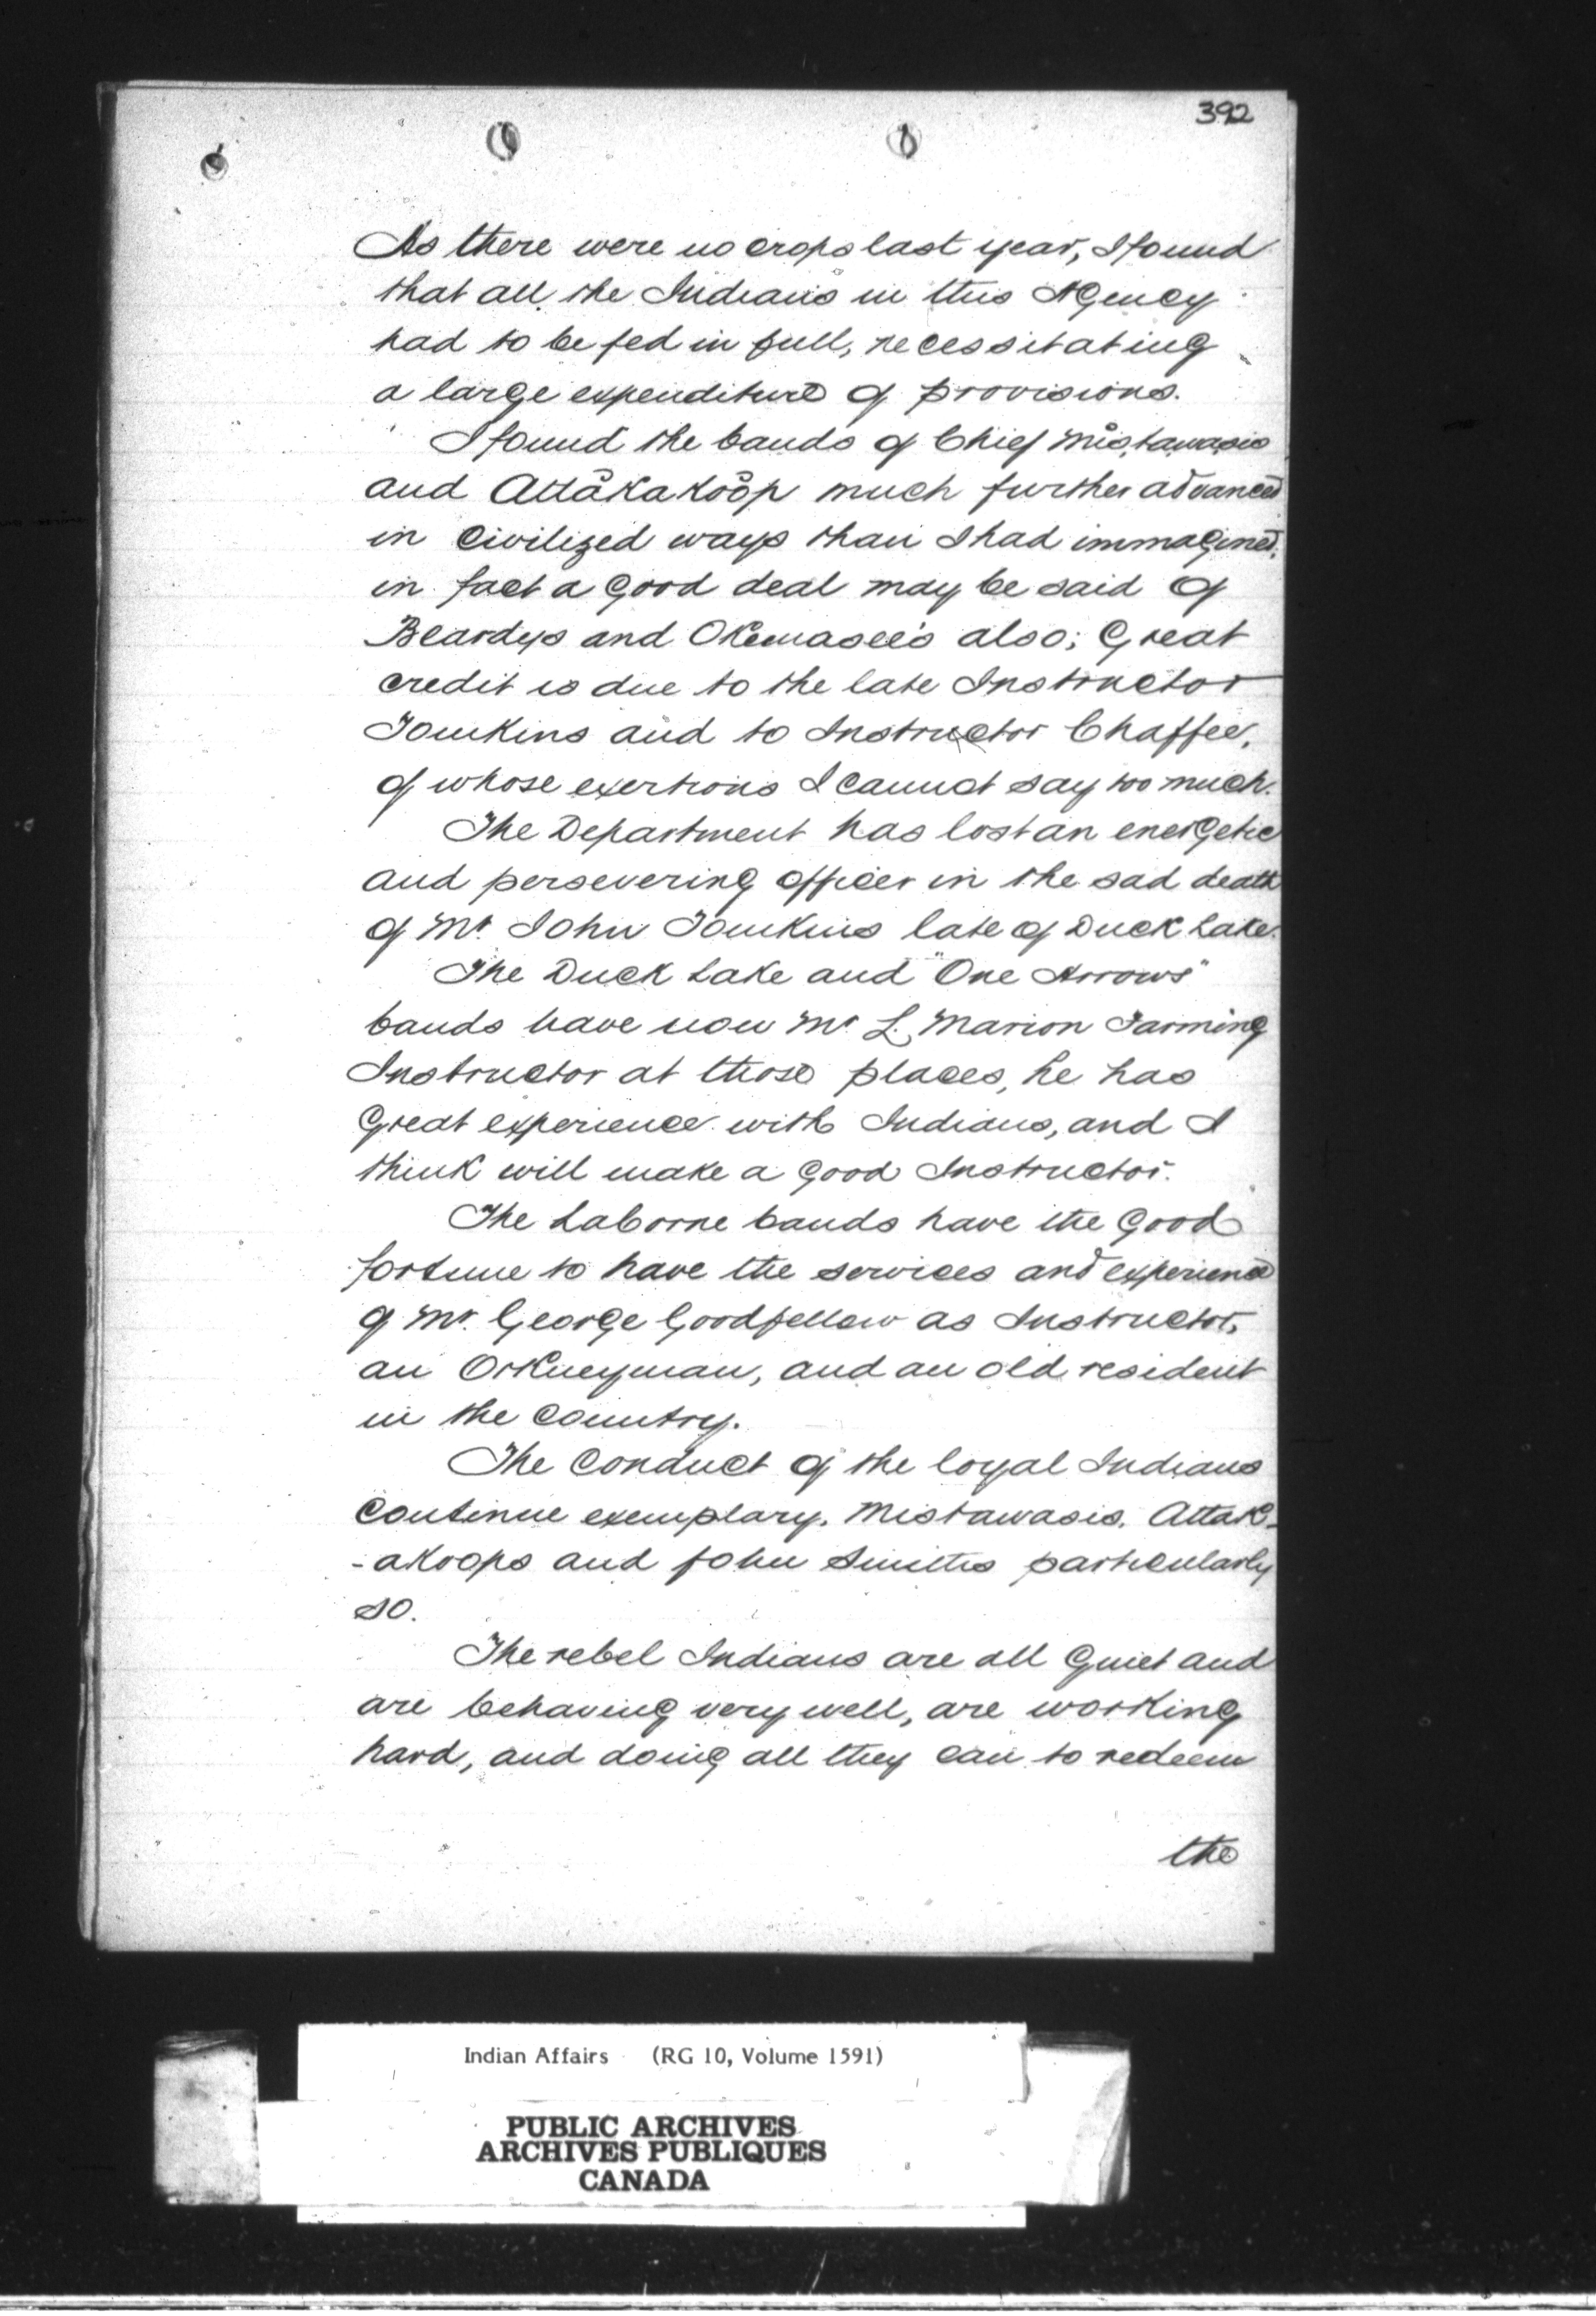 392
As there were no crops last year, I found
that all the Indians in this Agency
had to be fed in full, necessitating
a large expenditure of provisions.
I found the bands of Chief Mistawasis
and Attākakōōp much further advanced
in civilized ways than I had immagined,
in fact a good deal may be said of
Beardys and Okemasee's also; Great
credit is due to the late Instructor
Tomkins and to Instructor Chaffee,
of whose exertions I cannot say too much.
The Department has lost an energetic
and persevering officer in the sad death
of Mr. John Tomkins late of Duck Lake.
The Duck Lake and "One Arrows"
bands have now Mr L. Marion Farming
Instructor at those places, he has
great experience with Indians, and I
think will make a good Instructor.
The Laborne bands have the good
fortune to have the services and experience
of Mr. George Goodfellow as Instructor,
an Orkneyman, and an old resident
in the country.
The conduct of the loyal Indians
continue exemplary. Mistawasis. Attak-
-akoops and John Smiths particularly
so.
The rebel Indians are all quiet and
are behaving very well, are working
hard, and doing all they can to redeem
the
Indian Affairs (RG 10, Volume 1591)
PUBLIC ARCHIVES
ARCHIVES PUBLIQUES
CANADA